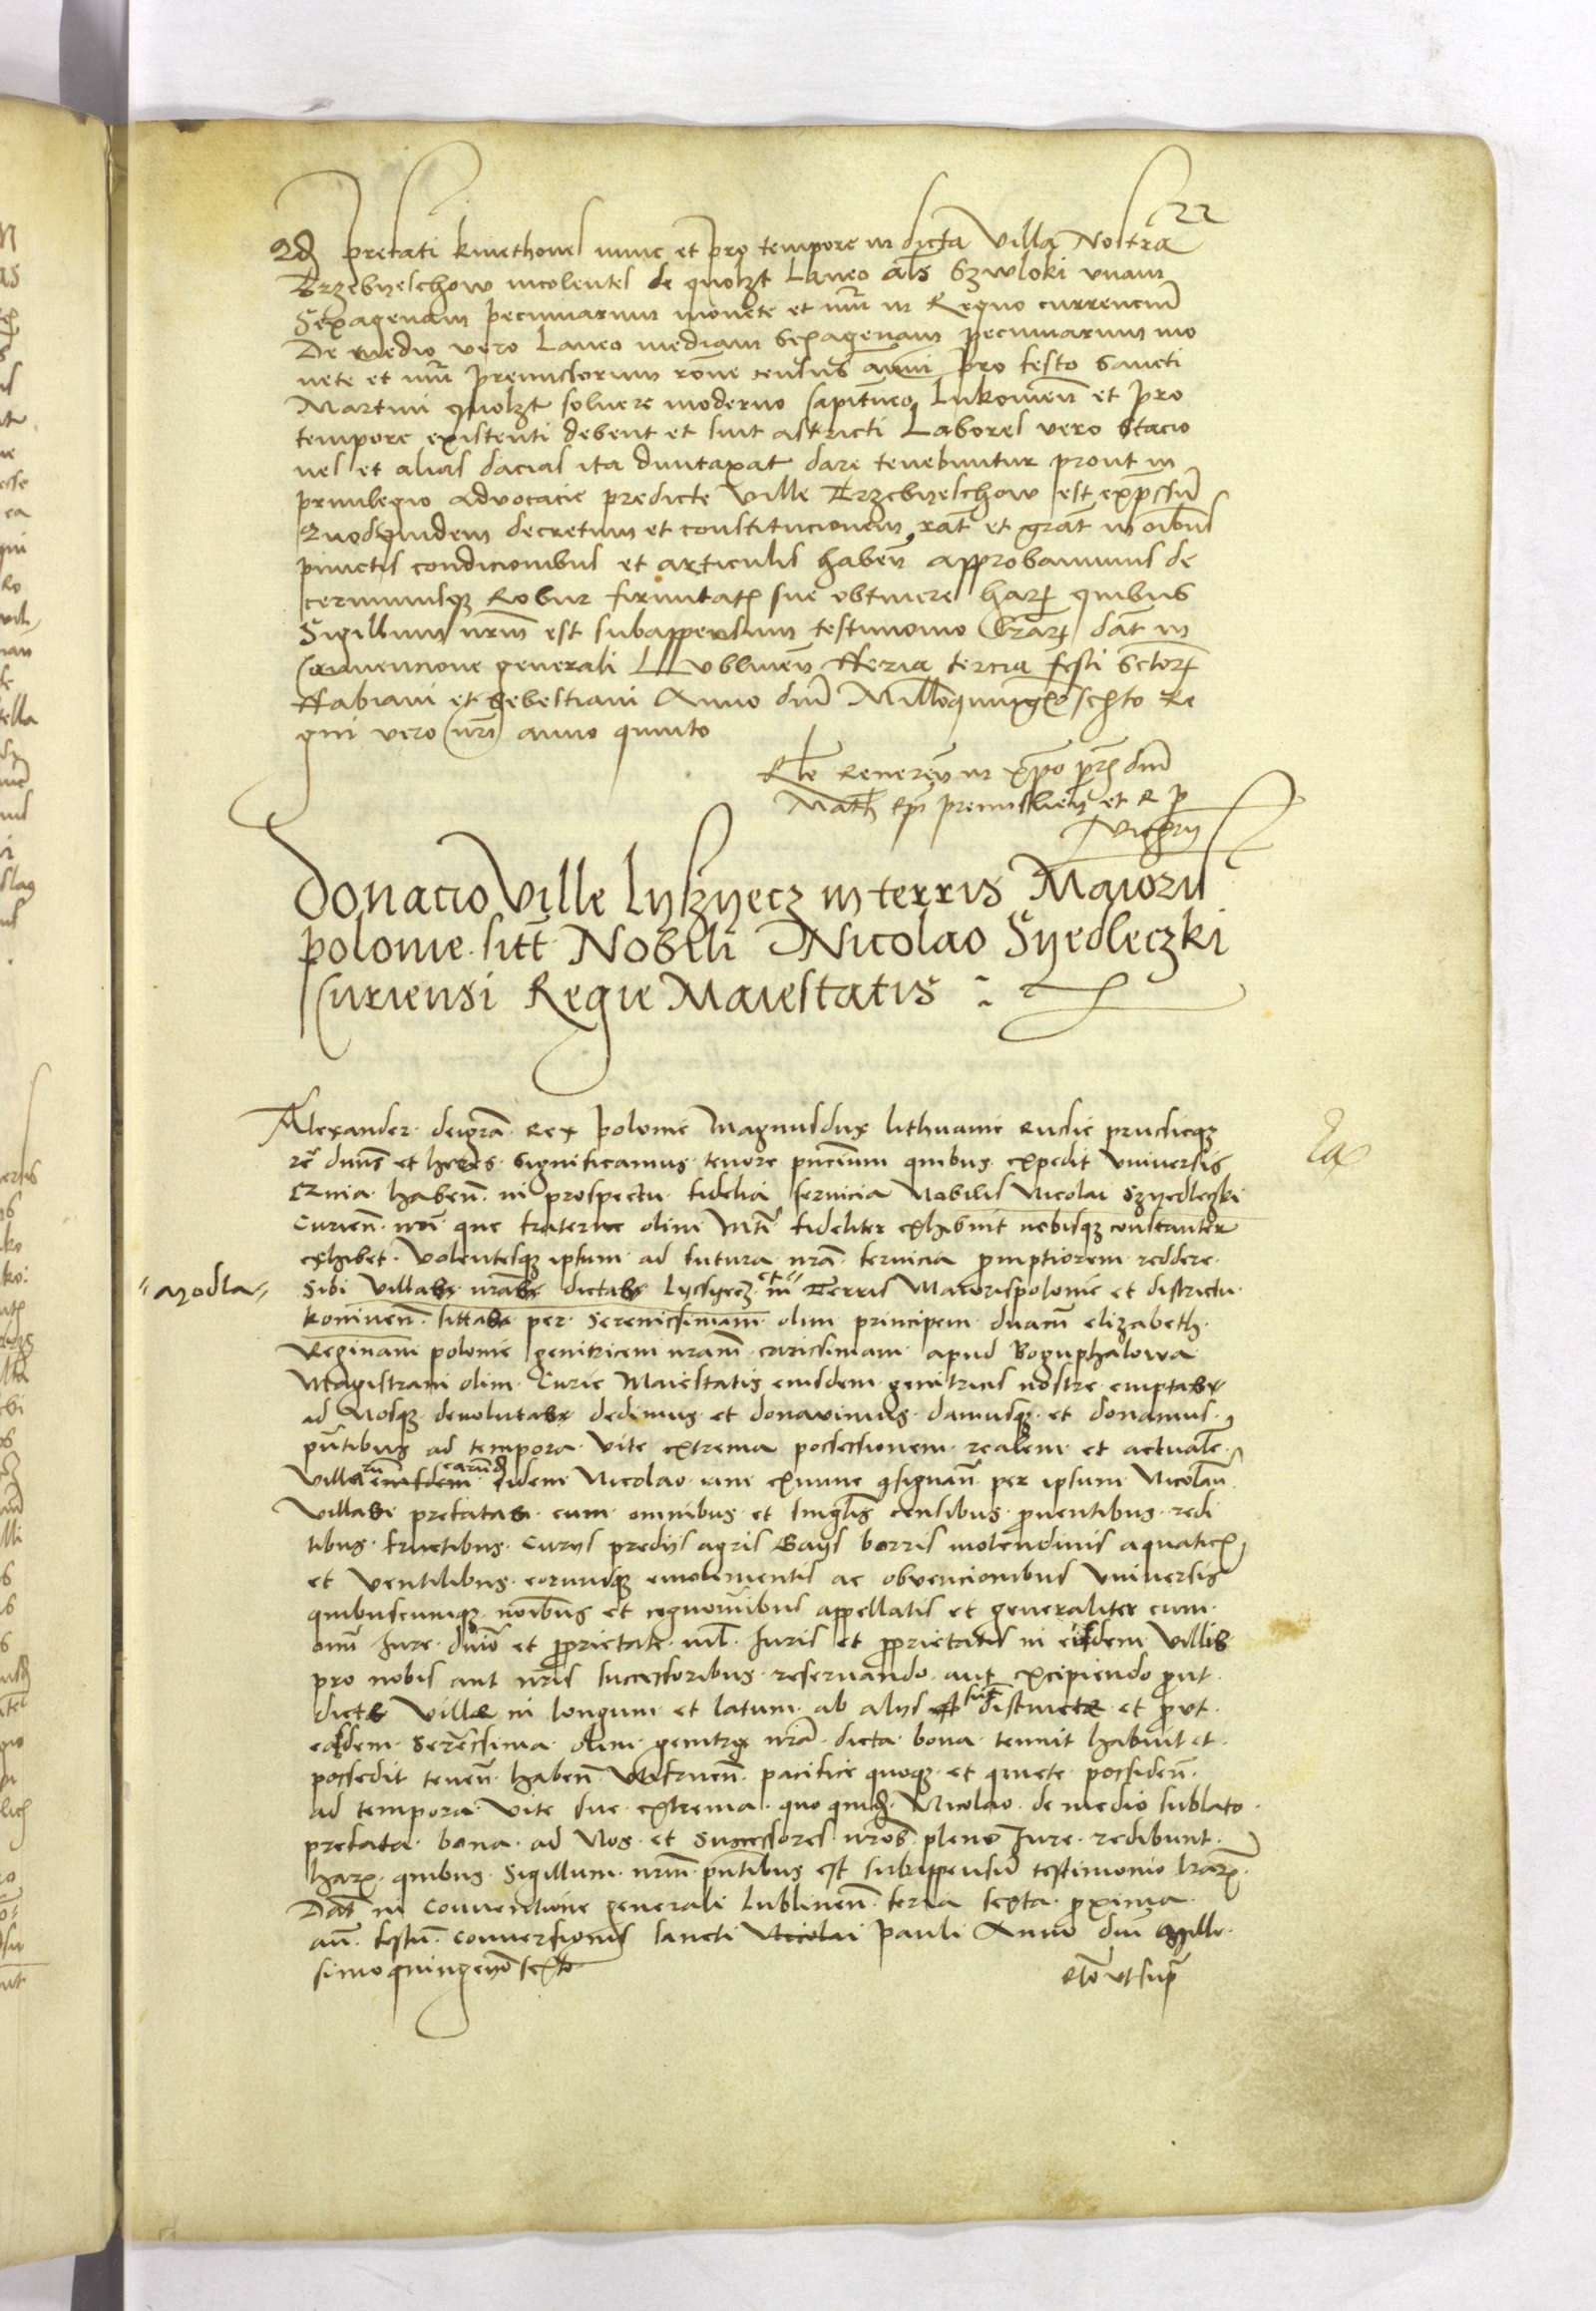 22
Qd prefati kmethones nunc et pro tempore in dicta Villa Nostra
Trzebyeschow incolentes de quolzt Laneo als Szwloki vnam
Sexagenam pecuniarum monete et nuī in Regno currenciū
De medio vero Laneo mediam Sexagenam pecuniarum mo
nete et nuī premissorum rone census anni pro festo Sancti
Martini quolzt soluere moderno Capitneo Lukouien et pro
tempore existenti debent et sint astricti Labores vero Stacio
nes et alias dacias ita duntaxat dare tenebuntur prout in
priuilegio aduocacie predicte Ville Trzebyeschow est expssū
Quodquidem decretum et constitucionem rat et grat in oībus
punctis condicionibus et articulis haben approbamus de
cernimusq Robur firmitatis sue obtinere harz quibus
Sigillum nrm est subappensum testimonio lrarz dat in
Conuencione generali Lublinen Feria tercia festi Sctorz
Fabiani et Sebestiani Anno dni Milloquingēo sexto Re
gni vero nri anno quinto
Rlo Reueren in xpo pris dni
Math Epi premislien et R p
vicepm
Donacio Ville Lyszyecz in terris Maioris
polonie sitt Nobili Nicolao Syedleczki
Curiensi Regie Maiestatis
Alexander deigra Rex polonie Magnusdux lithuanie Russie prussieq
re dnus et heres Significamus tenore pncium quibus expedit vniuersis
Quia haben in prospectu fidelia seruicia Nobilis Nicolai Szyedleczki
Curien nri que fraterne olim fideliter exhibuit nobisq constanter
exhibet Volentesq ipsum ad futura nra seruicia promptiorem reddere
modla
Sibi Villas nras dictas Lyssyecz et in Terris Maiorispolonie et districtu
koninen sittas per Serenissimam olim principem dnam elizabeth
Reginam polonie genitricem nram carissimam apud Boguphalowa
Magistram olim Curie Maiestatis eiusdem genitricis nostre emptas
ad Nosq deuolutas dedimus et donauimus damusq et donamus
pntibus ad tempora vite extrema possessionem realem et actuale
Villarū earūd eidem Nicolao iam exnunc assignan per ipsum Nicolau
Villas prefatas cum omnibus et singlis censibus prouentibus redi
tibus fructibus Curys predys agris Gays borris molendinis aquaticis
et ventilibus eorumq emolimentis ac obuencionibus Vniuersis
quibuscumq noibus et cognomibus appellatis et generaliter cum
omi Iure dnio et proprietate nil Iuris et proprietatis in eisdem Villis
pro nobis aut nris successoribus reseruando aut excipiendo prout
dicte Ville in longum et latum ab alys sut distincte et prout
easdem Serēssima olim genitrix nra dicta bona tenuit habuit et
possedit tenen haben Vtifruen pacifice quoq et quiete possiden
ad tempora vite sue extrema quo quid Nicolao de medio sublato
prefata bona ad Nos et Successores nros pleno Iure redibunt
harz quibus Sigillum nrm pntibus est subappensū testimonio lrarz
Dat in Conuentione generali Lublinen feria sexta proxima
an festu Conuersionis sancti Nicolai pauli Anno dni Mille
simo quingenō sexto
Rlo vt supra